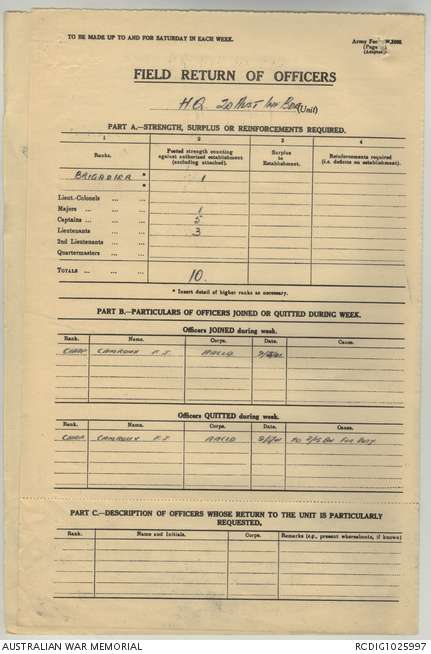 TO BE MADE UP TO AND FOR SATURDAY IN EACH WEEK.
Army Form W.3008.
(Page
(Adapted)
FIELD RETURN OF OFFICERS
H.Q. 20 Aust Inf Bde (Unit)
PART A.—STRENGTH, SURPLUS OR REINFORCEMENTS REQUIRED.
1 2 3 4
Ranks. Posted strength counting against authorized establishment (excluding attached). Surplus to Establishment. Reinforcements required (i.e. deficits on establishment).
BRIGADIER * 1
*
Lieut.-Colonels ... ...
Majors ... ... ... 1
Captains ... ... ... 5
Lieutenants ... ... 3
2nd Lieutenants ... ...
Quartermasters ... ...
TOTALS ... ... ... 10.
* Insert detail of higher ranks as necessary.
PART B.—PARTICULARS OF OFFICERS JOINED OR QUITTED DURING WEEK.
Officers JOINED during week.
Rank. Name. Corps. Date. Cause.
CHAP F.J.
Officers QUITTED during week.
Rank. Name. Corps. Date. Cause.
CHAP F.J. TO 2/15 Bn FOR DUTY
PART C.—DESCRIPTION OF OFFICERS WHOSE RETURN TO THE UNIT IS PARTICULARLY REQUESTED.
Rank. Name and Initials. Corps. Remarks (e.g., present whereabouts, if known)
AUSTRALIAN WAR MEMORIAL
RCDIG1025997